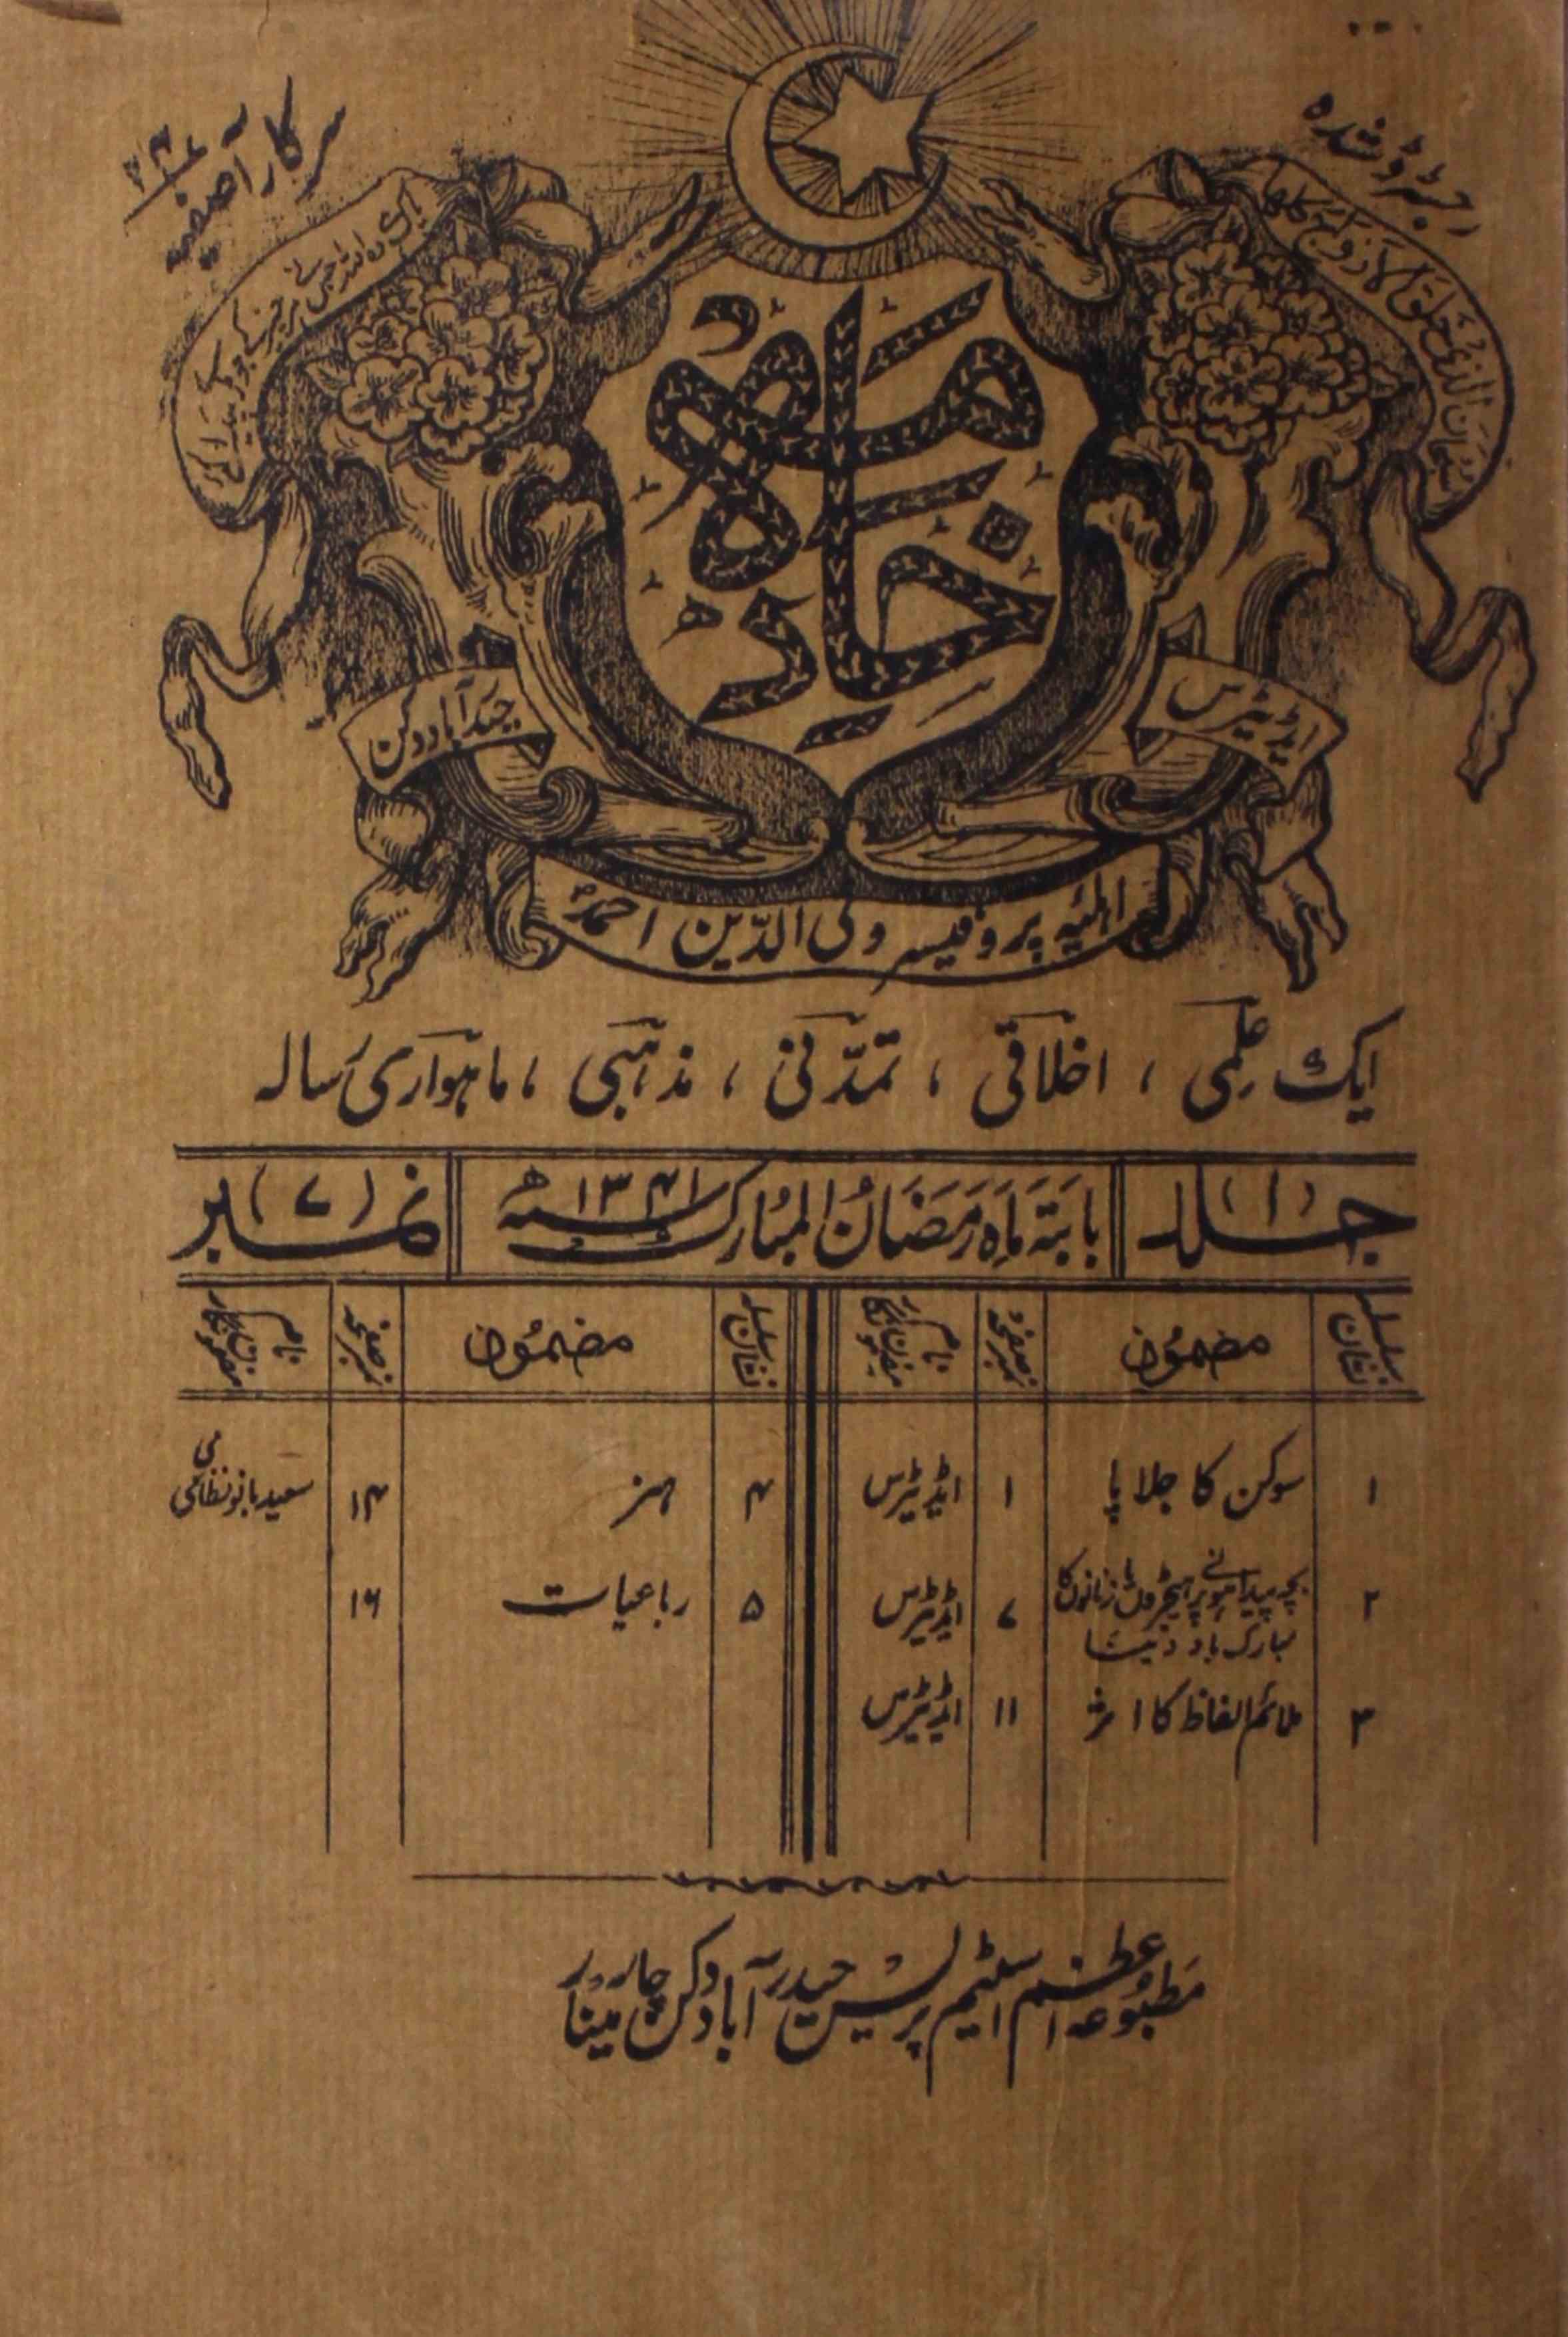 رجسٹرڈ شدہ
سرکار آصفیہ
سبحان الذی خلق الازواج کلھا
پاک وہ اللہ جس نے ہر چیز کے جوڑے پیدا کئے
خادمہ
ایڈیٹرس
حیدرآباد دکن
اہلیہ پروفیسر ولی الدین احمد
ایک علمی ، اخلاقی ، تمدّنی ، مذہبی ، ماہواری رسالہ
جلد (۱) بابتہ ماہ رمضان المبارک سنہ ۱۳۴۱ھ نمبر (۷)
سلسلہ نشان مضمون نمبر صفحہ نام مضمون نگار سلسلہ نشان مضمون نمبر صفحہ نام مضمون نگار
۱ سوکن کا جلاپا ۱ ایڈیٹرس ۴ ہنر ۱۴ سعید بانو نظامی
۲ بچہ پیدا ہونے پر ہیجڑوں یا زنانوں کا مبارک باد دینا ۷ ایڈیٹرس ۵ رباعیات ۱۶
۳ ملائم الفاظ کا اثر ۱۱ ایڈیٹرس
مطبوعہ اعظم اسٹیم پریس حیدرآباد دکن چار مینار